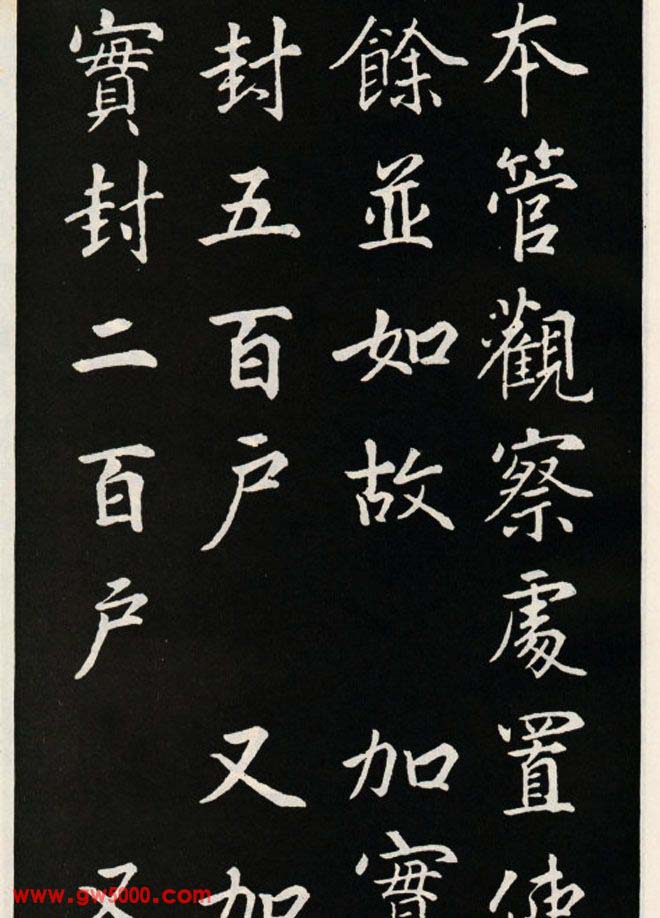 本管觀察處置使
餘並如故 加實
封五百户 又加
實封二百户 又
www.gw5000.com